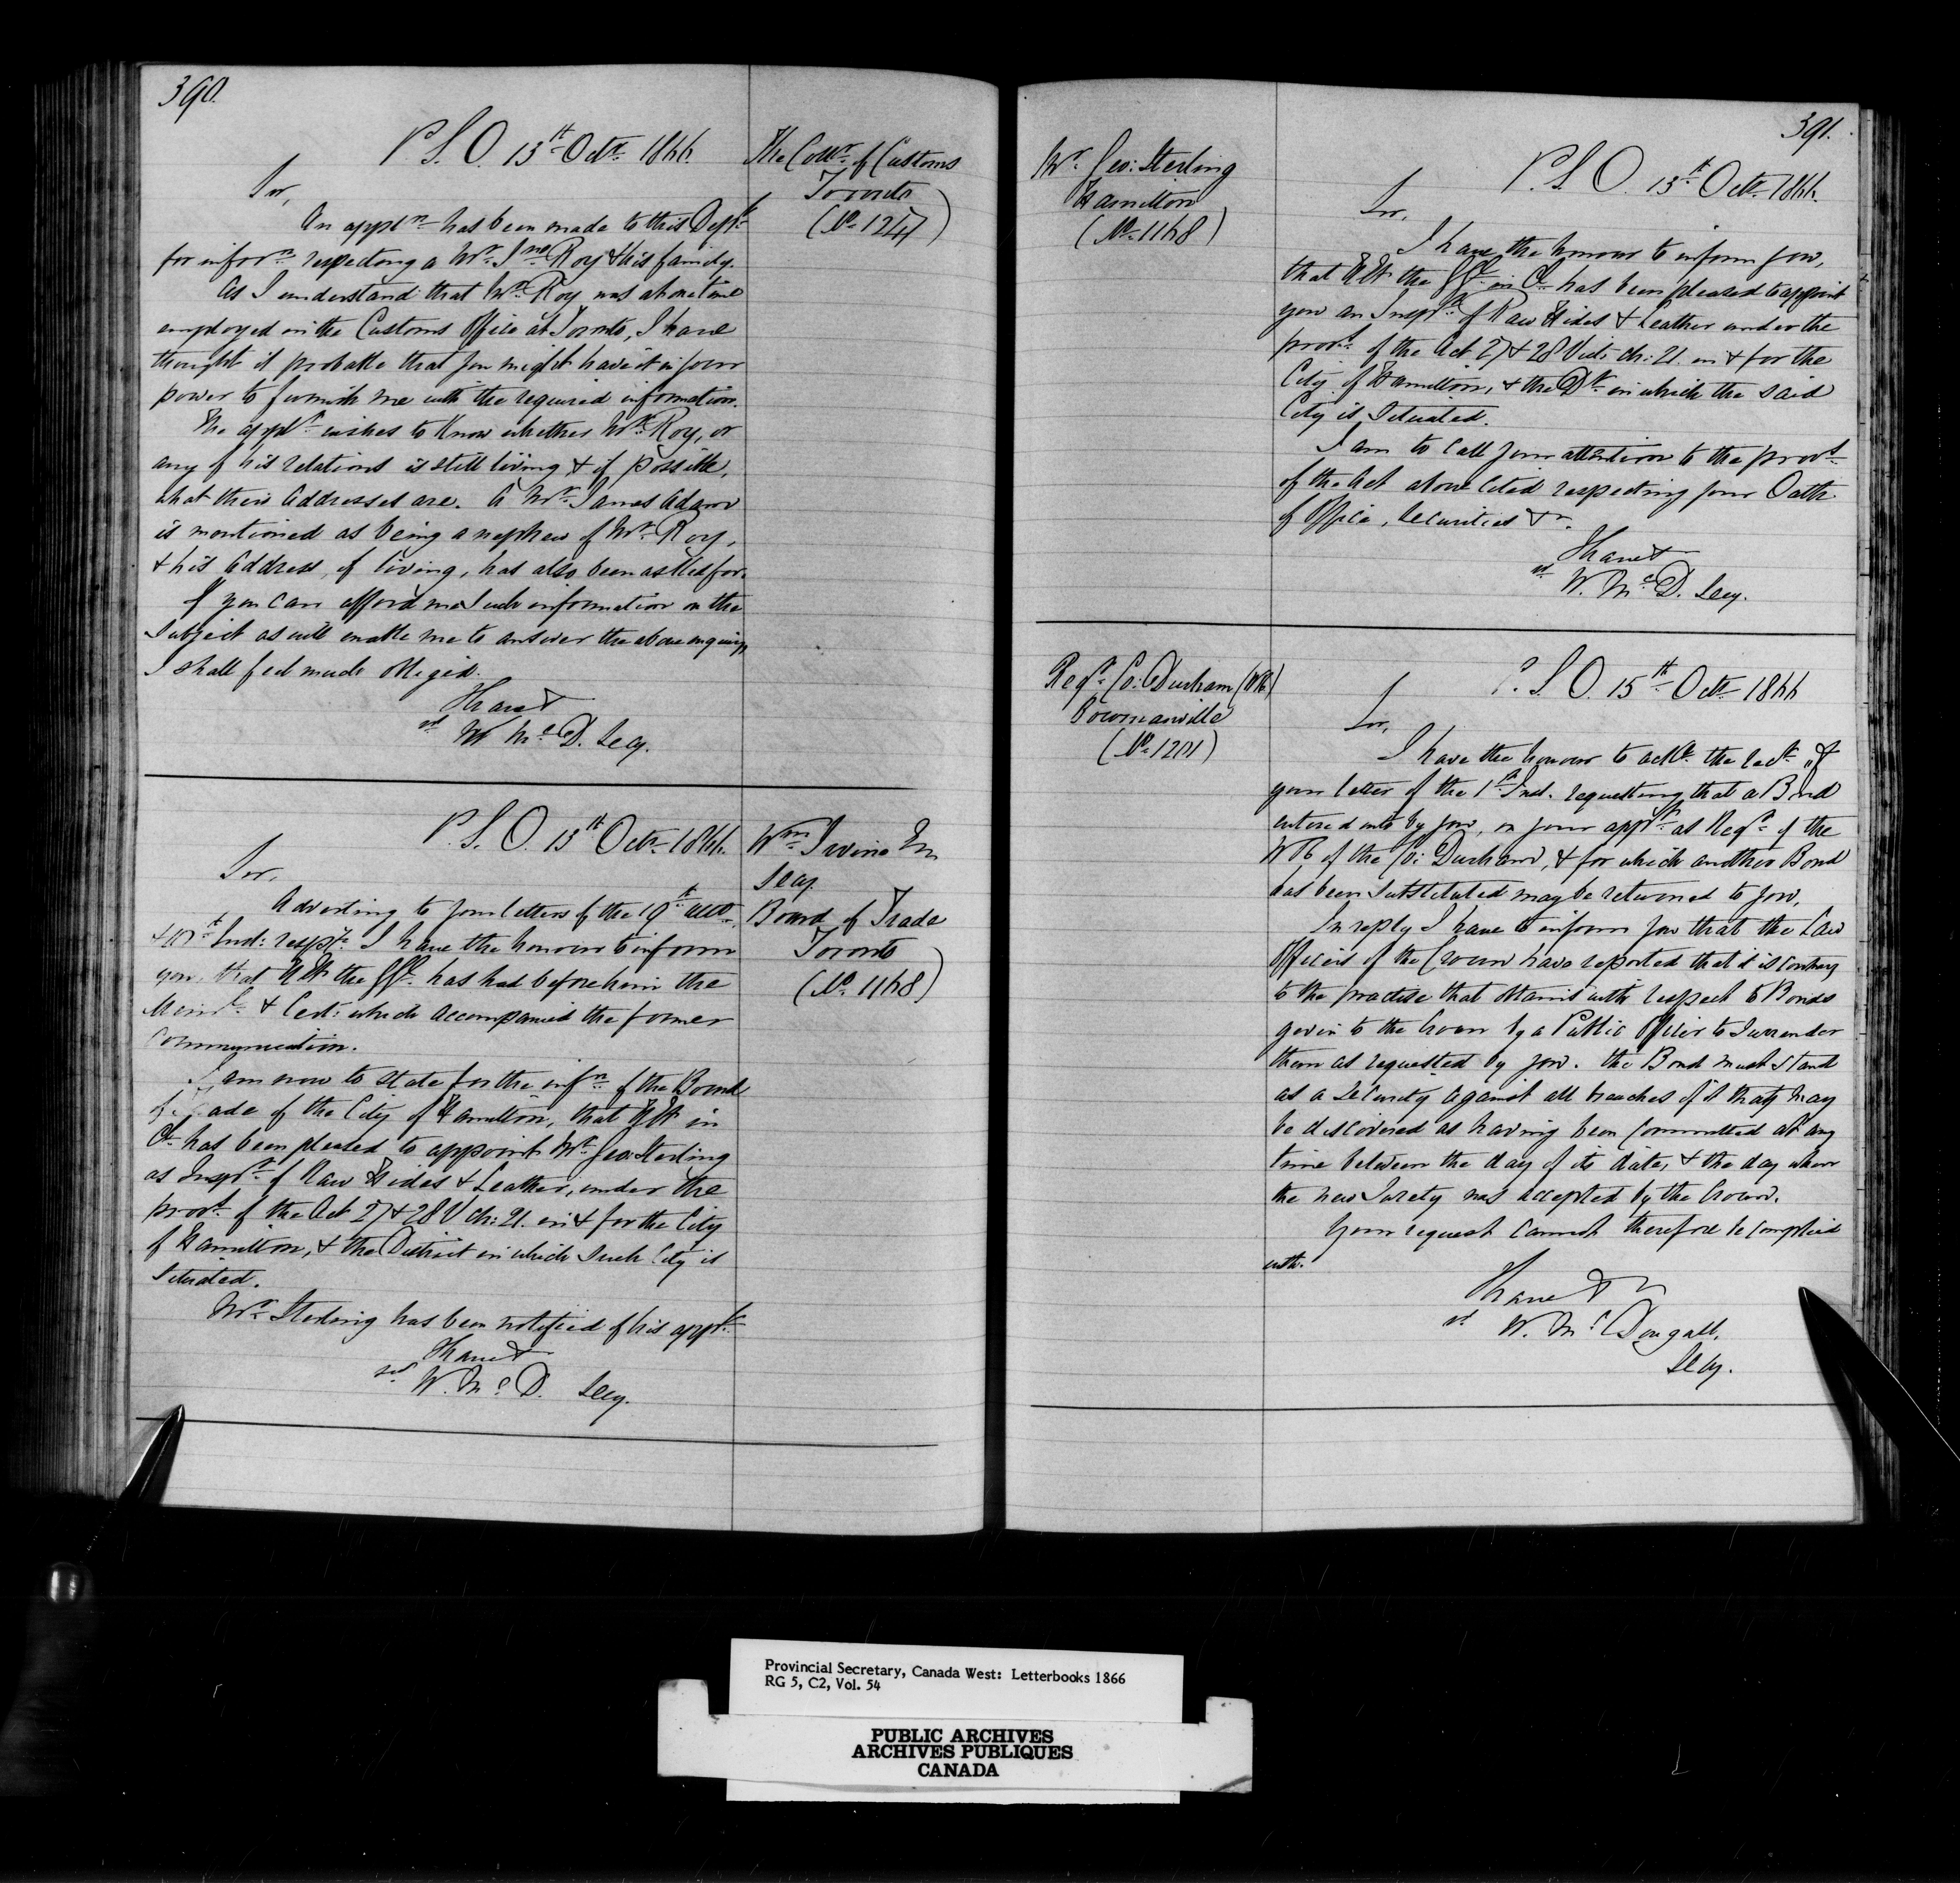 390.
P. S. O. 13th Octr 1866.
The Collr of Customs
Toronto
(No 1247)
Sir,
An appln has been made to this Deptt
for inforn respecting a Mr Jno Roy & his family.
As I understand that Mr Roy was at one time
employed in the Customs Office at Toronto, I have
thought it probable that you might have it in your
power to furnish me with the required information.
The applt wishes to Know whether Mr Roy, or
any of his relations is still living & if possible,
what their addresses are. A Mr James Adam
is mentioned as being a nephew of Mr Roy,
& his Address, if living, has also been asked for.
If you can afford me such information on the
Subject as will enable me to answer the above enquiry,
I shall feel much obliged.
I have &
sd W McD. Secy.
P. S. O. 13th Octr 1866.
Wm Irvine
Secy.
Board of Trade
Toronto
(No 1168)
Sir,
Adverting to your letters of the 19th ulto,
Inst: respy I have the honour to inform
you, that H E the GG. has had before him the
Meml & Cert: which accompanied the former
Communication.
I am now to state for the infn of the Board
of Trade of the City of Hamilton, that H E in
Cl has been pleased to appoint Mr Geo: Sterling
as Inspr of Raw Hides & Leather, under the
provs of the Act 27 & 28 V ch: 21. in & for the City
of Hamilton, & the District in which Such City is
Situated.
Mr Sterling has been notified of his appt
I have &
sd W. McD. Secy.
391.
Mr Geo: Sterling
Hamilton
(No 1168)
P. S. O. 13th Octr 1866.
Sir,
I have the honour to inform you,
that H E the GG in Cl has been pleased to appoint
you an Inspr of Raw Hides & Leather under the
provs of the Act 27 & 28 Vict: ch: 21. in & for the
City of Hamilton, & the Dt in which the said
City is Situated.
I am to call your attention to the provs
of the Act above cited respecting your Oath
of Office, Securities &c.
I have &
sd W. McD. Secy.
Regr Co: Durham (WR)
Bowmanville
(No 1201)
P. S. O. 15th Octr 1866
Sir,
I have the honour to ackn the rect of
your letter of the 1st Inst. requesting that a Bond
entered into by you, on your appt as Regr of the
W R of the Co: Durham, & for which another Bond
has been Substituted may be returned to you.
In reply I have to inform you that the Law
Officers of the Crown have reported that it is contrary
to the practise that obtains with respect to Bonds
given to the Crown by a Public Officer to Surrender
them as requested by you. The Bond must Stand
as a Security against all breaches of it that may
be discovered as having been Committed at any
time between the day of its date, & the day when
the new Surety was accepted by the Crown.
Your request Cannot therefore be complied
with.
I have &
sd W. McDougall,
Secy.
Provincial Secretary, Canada West: Letterbooks 1866
RG 5, C2, Vol. 54
PUBLIC ARCHIVES
ARCHIVES PUBLIQUES
CANADA